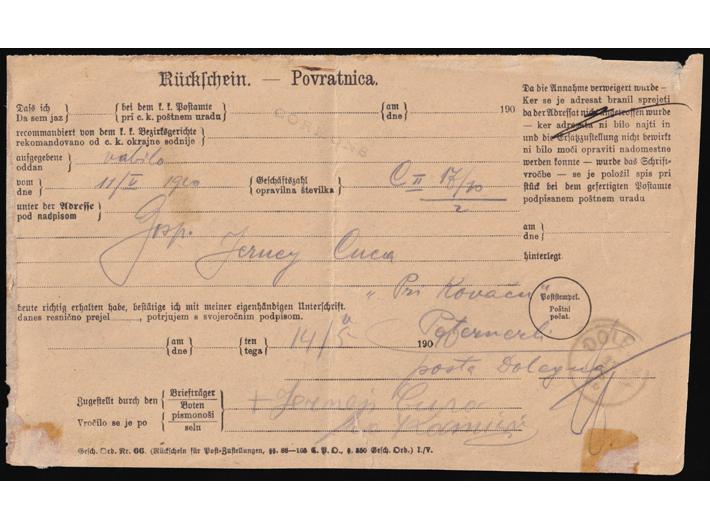 Rückschein. — Povratnica.
Daß ich bei dem k. k. Postamte am 190
Da sem jaz pri c. k. poštnem uradu dne
rekommandiert von dem k. k. Bezirksgerichte
rekomandovano od c. k. okrajne sodnije
aufgegebene vabilo
oddan
vom 11/V 1910 Geschäftszahl C II 17/10
dne opravilna številka 2
unter der Adresse Gosp.
pod nadpisom
Jernej Cuca
"Pri Kovaču"
heute richtig erhalten habe, bestätige ich mit meiner eigenhändigen Unterschrift.
danes resnično prejel, potrjujem s svojeročnim podpisom.
am ten 14/5 190
dne tega
pošta
Zugestellt durch den Briefträger
Boten
Vročilo se je po pismonoši
seln
+ Jernej
Gesch. Ord. Nr. 66. (Rückschein für Post-Zustellungen, §§. 88—105 C. P. O., §. 350 Gesch. Ord.) I./V.
Da die Annahme verweigert wurde —
Ker se je adresat branil sprejeti
da der Adressat nicht angetroffen wurde
— ker adresata ni bilo najti in
und die Ersatzzustellung nicht bewirkt
ni bilo moči opraviti nadomestne
werden konnte — wurde das Schrift-
vročbe — se je položil spis pri
stück bei dem gefertigten Postamte
podpisanem poštnem uradu
am
dne
hinterlegt.
Poststempel.
Poštni
pečat.